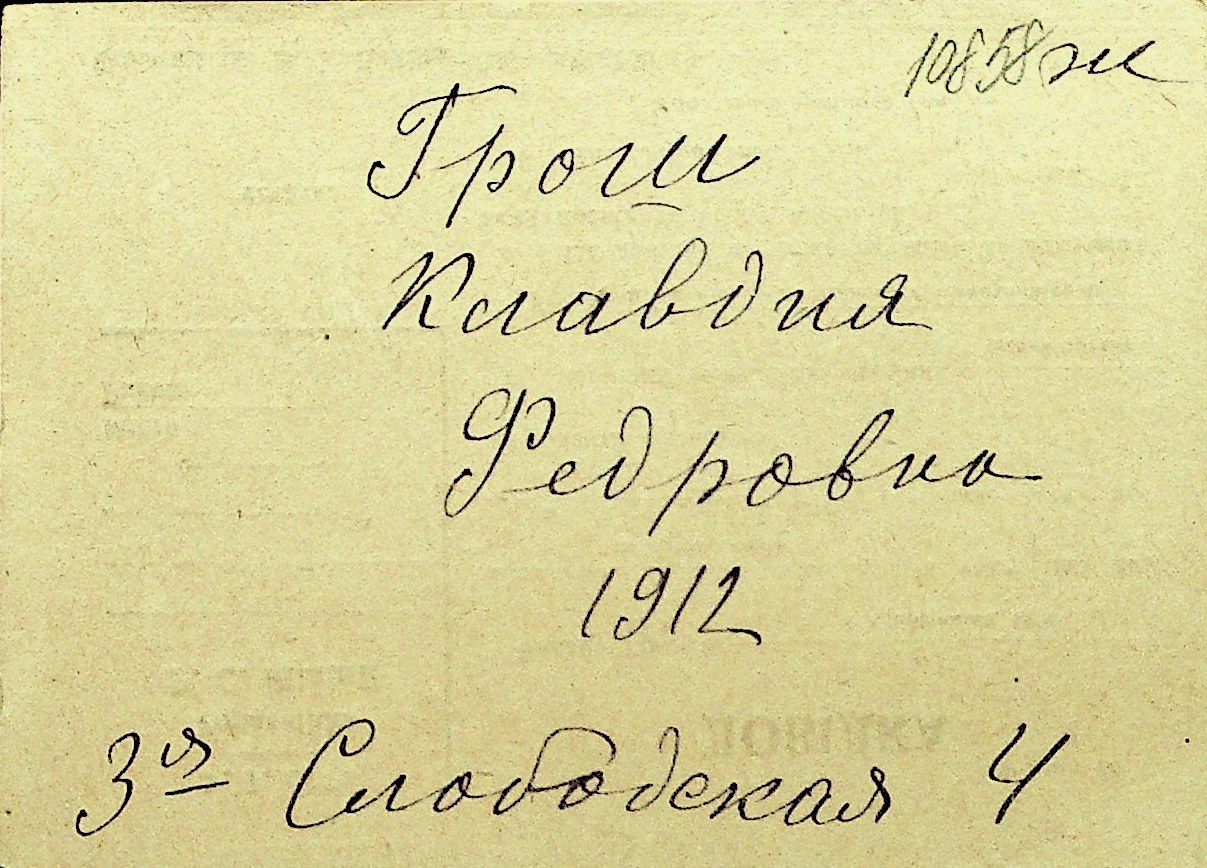 10858 ж
Грош
Клавдия
Федровна
1912
3ʸᵃ Слободская 4
ДОВІДКА